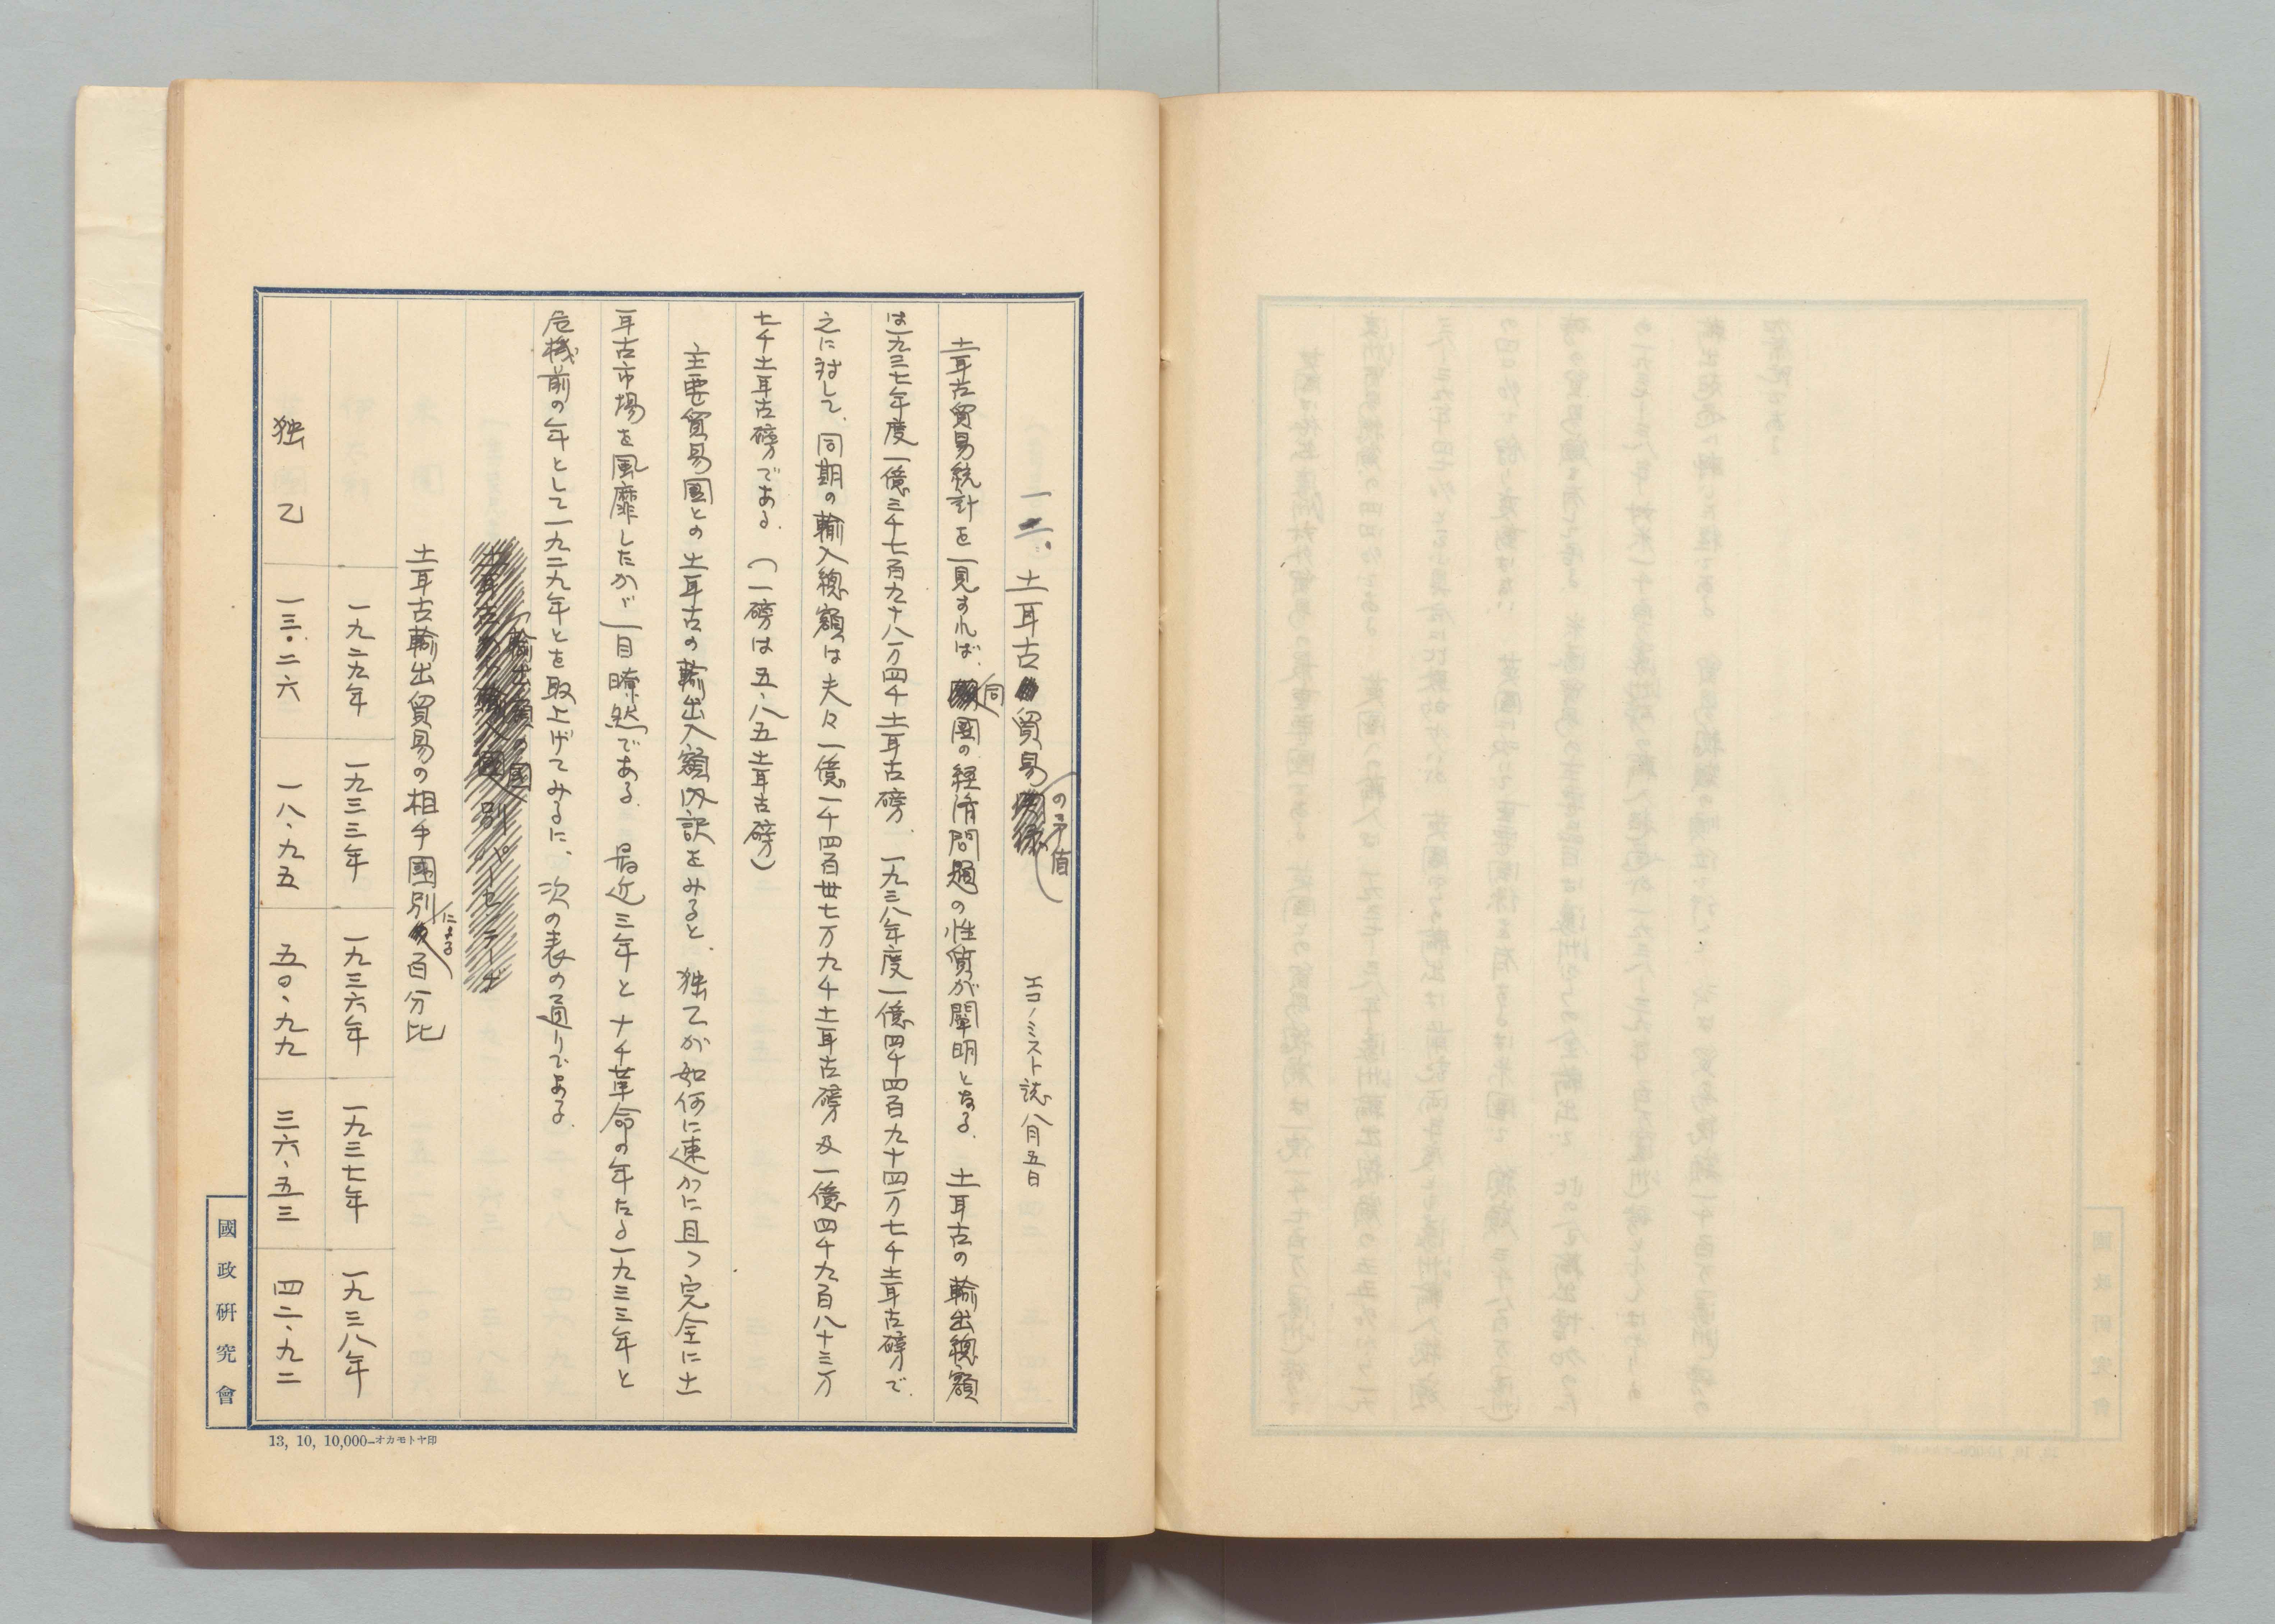 一二. 土耳古貿易の矛盾 エコノミスト誌 八月五日
土耳古貿易統計を一見すれば、同國の経済問題の性質が闡明となる. 土耳古の輸出總額
は一九三七年度一億三千七百九十八万四千土耳古磅. 一九三八年度一億四千四百九十四万七千土耳古磅で.
之に対して、同期の輸入總額は夫々一億一千四百卅七万九千土耳古磅及一億四千九百八十三万
七千土耳古磅である. (一磅は五.八五土耳古磅)
主要貿易國との土耳古の輸出入額内訳をみると、独乙が如何に速かに且つ完全に土
耳古市場を風靡したかゞ一目瞭然である. 最近三年とナチ革命の年たる一九三三年と
危機前の年として一九二九年とを取上げてみるに、次の表の通りである.
土耳古輸出貿易の相手國別による百分比
一九二九年 一九三三年 一九三六年 一九三七年 一九三八年
独乙 一三.二六 一八、九五 五〇、九九 三六、五三 四二、九二
國政研究會
13, 10, 10,000—オカモトヤ印